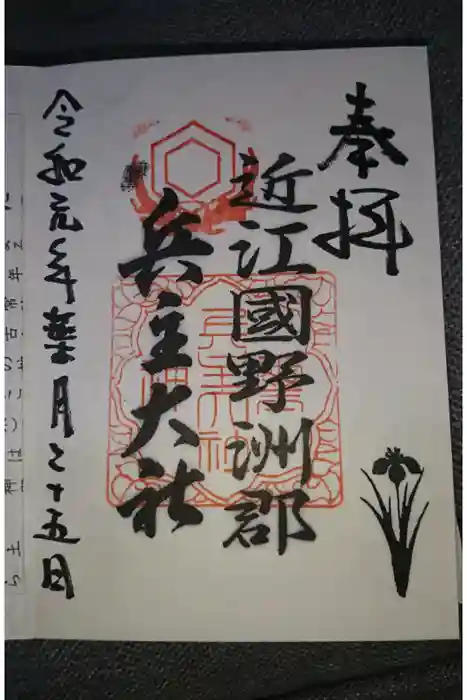 奉拝
近江國野洲郡
兵主大社
令和元年葉月二十五日